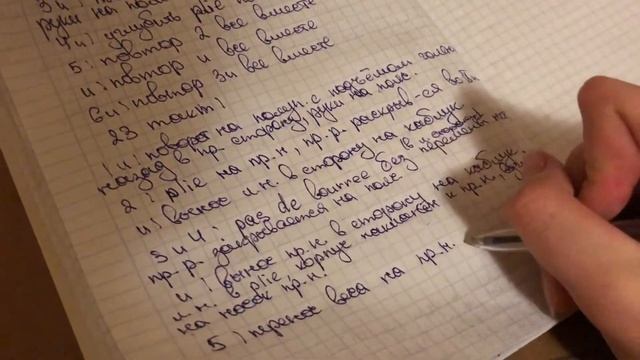 3 и
руки на
4 и) углубить plie
5: повтор 2 все вместе
и: повтор и все вместе
6 и: повтор 3и все вместе
23 такт)
1 и) поворот на полуп. с подъёмом
назад в пр. сторону, руки на пояс.
2: plie на пр.н, пр.р. раскрыв-ся
и) вынос л.н. в сторону на каблук
3 и 4: pas de bourree без перемещ
пр.р. закрывается на пояс.
и) вынос пр.н. в сторону на каблук
л.н. в plie, корпус наклонен к пр.н,
на носок пр.н.
5) перенос веса на пр.н.